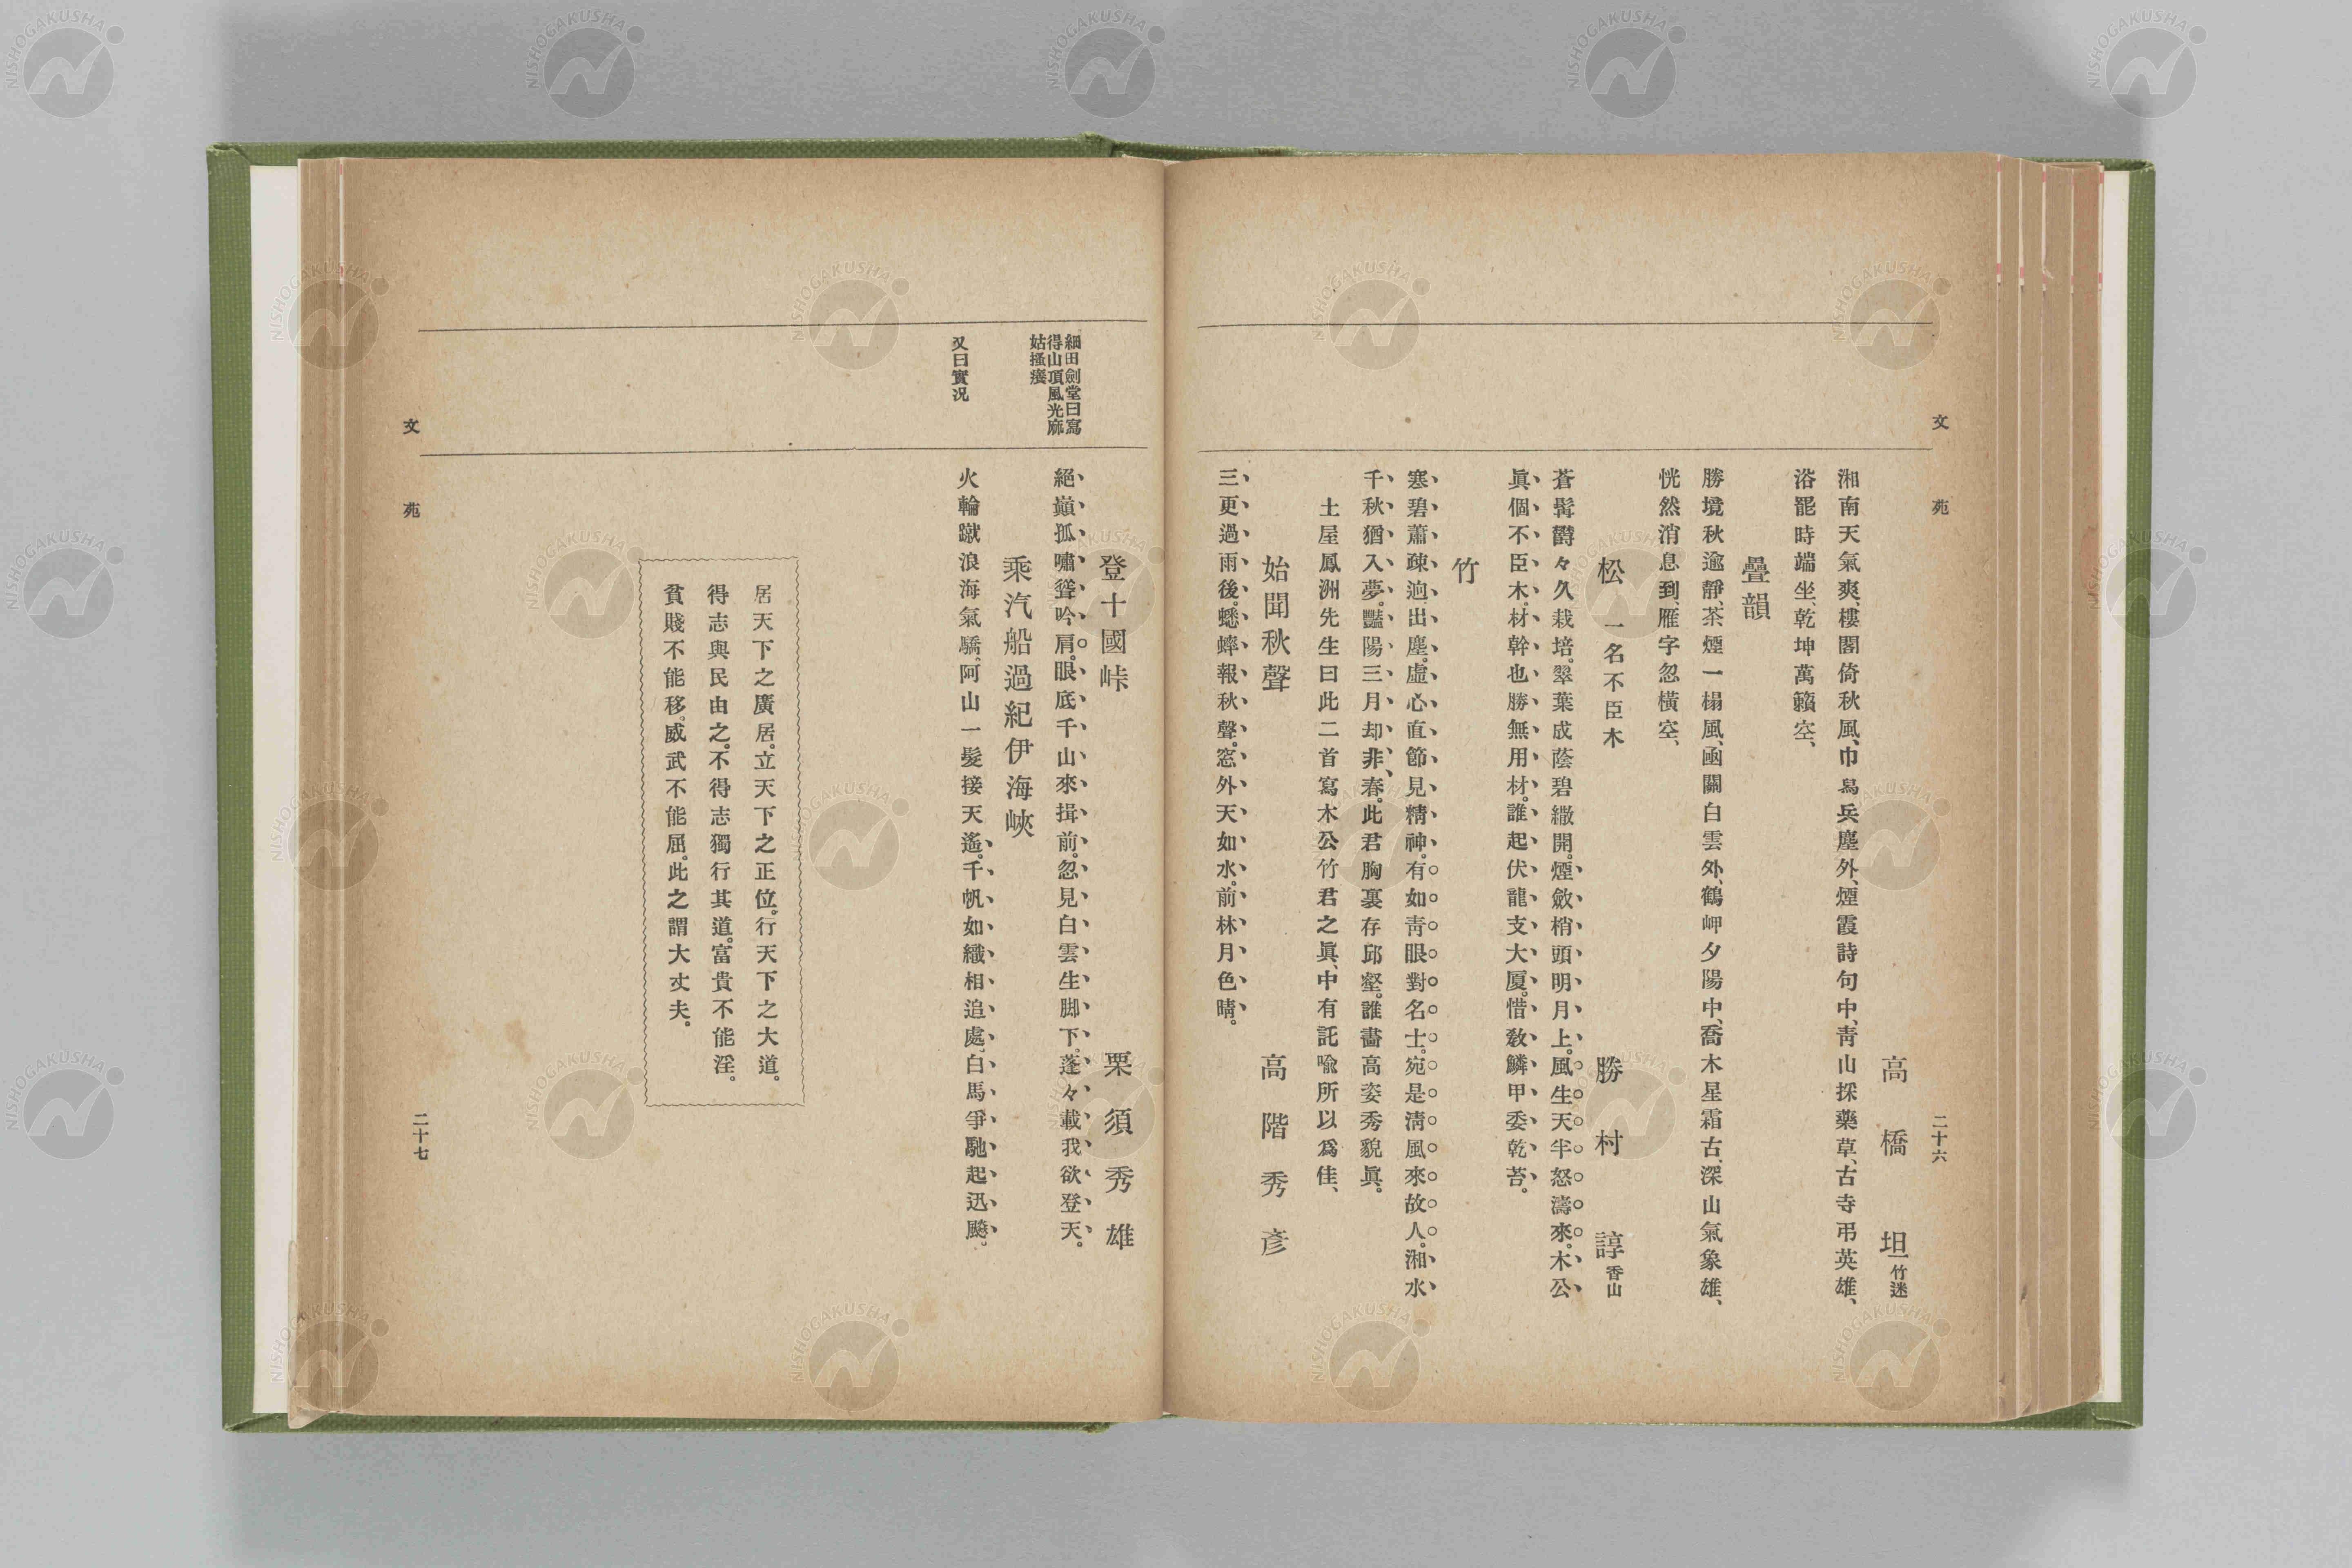 文苑
二十六
高橋坦竹迷
湘南天氣爽、樓閣倚秋風、巾舃兵塵外、煙霞詩句中、靑山採藥草、古寺弔英雄、
浴罷時端坐、乾坤萬籟空、
疊韻
勝境秋逾靜、茶煙一榻風、凾關白雲外、鶴岬夕陽中、喬木星霜古、深山氣象雄、
恍然消息到、雁字忽橫空、
松 一名不臣木
勝村諄香山
蒼髯欝々久栽培。翠葉成蔭碧繖開。煙斂梢頭明月上。風生天半怒濤來。木公
眞個不臣木。材幹也勝無用材。誰起伏龍支大厦。惜敎鱗甲委乾苔。
竹
寒碧蕭疎逈出塵。虛心直節見精神。有如靑眼對名士。宛是淸風來故人。湘水
千秋猶入夢。豔陽三月却非春。此君胸裏存邱壑。誰畵高姿秀貌眞。
土屋鳳洲先生曰此二首寫木公竹君之眞、中有託喩所以爲佳、
始聞秋聲
高階秀彥
三更過雨後。蟋蟀報秋聲。窓外天如水。前林月色晴。
登十國峠
栗須秀雄
細田劍堂曰寫
得山頂風光麻
姑搔癢
絕巓孤嘯聳吟肩。眼底千山來揖前。忽見白雲生脚下。蓬々載我欲登天。
乘汽船過紀伊海峽
又曰實况
火輪蹴浪海氣驕、阿山一髮接天遙。千帆如織相追處、白馬爭馳起迅飈。
居天下之廣居。立天下之正位。行天下之大道。
得志與民由之。不得志獨行其道。富貴不能淫。
貧賤不能移。威武不能屈。此之謂大丈夫。
文苑
二十七
NISHOGAKUSHA